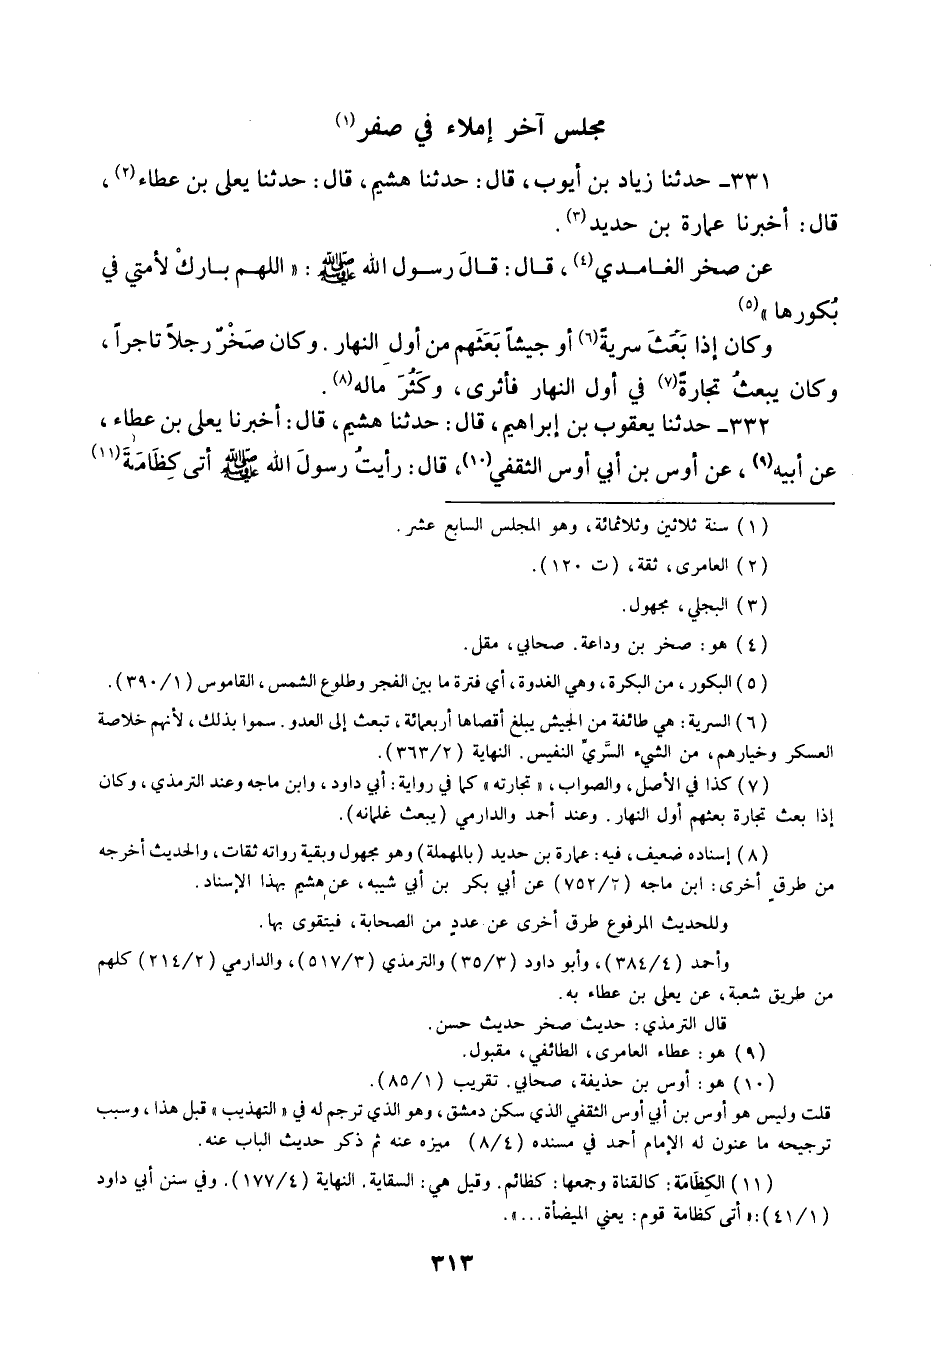 مجلس آخر إملاء في صفر (١)
٣٣١ـ حدثنا زياد بن أيوب، قال: حدثنا هشيم، قال: حدثنا يعلى بن عطاء(٢)،
قال: أخبرنا عمارة بن حديد(٣).
عن صخر الغامدي(٤)، قال: قالَ رسول الله ﷺ: «اللهم باركْ لأمتي في
بُكورها»(٥)
وكان إذا بَعَثَ سريةً(٦) أو جيشاً بَعَثَهم من أولِ النهار. وكان صَخْرٌ رجلاً تاجراً،
وكان يبعثُ تجارةً(٧) في أول النهار فأثرى، وكَثُرَ ماله(٨).
٣٣٢ـ حدثنا يعقوب بن إبراهيم، قال: حدثنا هشيم، قال: أخبرنا يعلى بن عطاء،
عن أبيه(٩)، عن أوس بن أبي أوس الثقفي(١٠)، قال: رأيتُ رسولَ الله ﷺ أتى كِظَامَةَ(١١)
(١) سنة ثلاثين وثلاثمائة، وهو المجلس السابع عشر.
(٢) العامرى، ثقة، (ت ١٢٠).
(٣) البجلي، مجهول.
(٤) هو: صخر بن وداعة. صحابي، مقل.
(٥) البكور، من البكرة، وهي الغدوة، أي فترة ما بين الفجر وطلوع الشمس، القاموس (١/٣٩٠).
(٦) السرية: هي طائفة من الجيش يبلغ أقصاها أربعمائة، تبعث إلى العدو. سموا بذلك، لأنهم خلاصة
العسكر وخيارهم، من الشيء السَّريِّ النفيس. النهاية (٢/٣٦٣).
(٧) كذا في الأصل، والصواب، «تجارته» كما في رواية: أبي داود، وابن ماجه وعند الترمذي، وكان
إذا بعث تجارة بعثهم أول النهار. وعند أحمد والدارمي (يبعث غلمانه).
(٨) إسناده ضعيف، فيه: عمارة بن حديد (بالمهملة) وهو مجهول وبقية رواته ثقات، والحديث أخرجه
من طرقٍ أخرى: ابن ماجه (٢/٧٥٢) عن أبي بكر بن أبي شيبه، عن هشيم بهذا الإسناد.
وللحديث المرفوع طرق أخرى عن عددٍ من الصحابة، فيتقوى بها.
وأحمد (٤/٣٨٤)، وأبو داود (٣/٣٥) والترمذي (٣/٥١٧)، والدارمي (٢/٢١٤) كلهم
من طريق شعبة، عن يعلى بن عطاء به.
قال الترمذي: حديث صخر حديث حسن.
(٩) هو: عطاء العامرى، الطائفي، مقبول.
(١٠) هو: أوس بن حذيفة، صحابي. تقريب (١/٨٥).
قلت وليس هو أوس بن أبي أوس الثقفي الذي سكن دمشق، وهو الذي ترجم له في «التهذيب» قبل هذا، وسبب
ترجيحه ما عنون له الإمام أحمد في مسنده (٤/٨) ميزه عنه ثم ذكر حديث الباب عنه.
(١١) الكِظَامَة: كالقناة وجمعها: كظائم. وقيل هي: السقاية. النهاية (٤/١٧٧). وفي سنن أبي داود
(١/٤١):«أتى كظامة قوم: يعني الميضأة...».
٣١٣